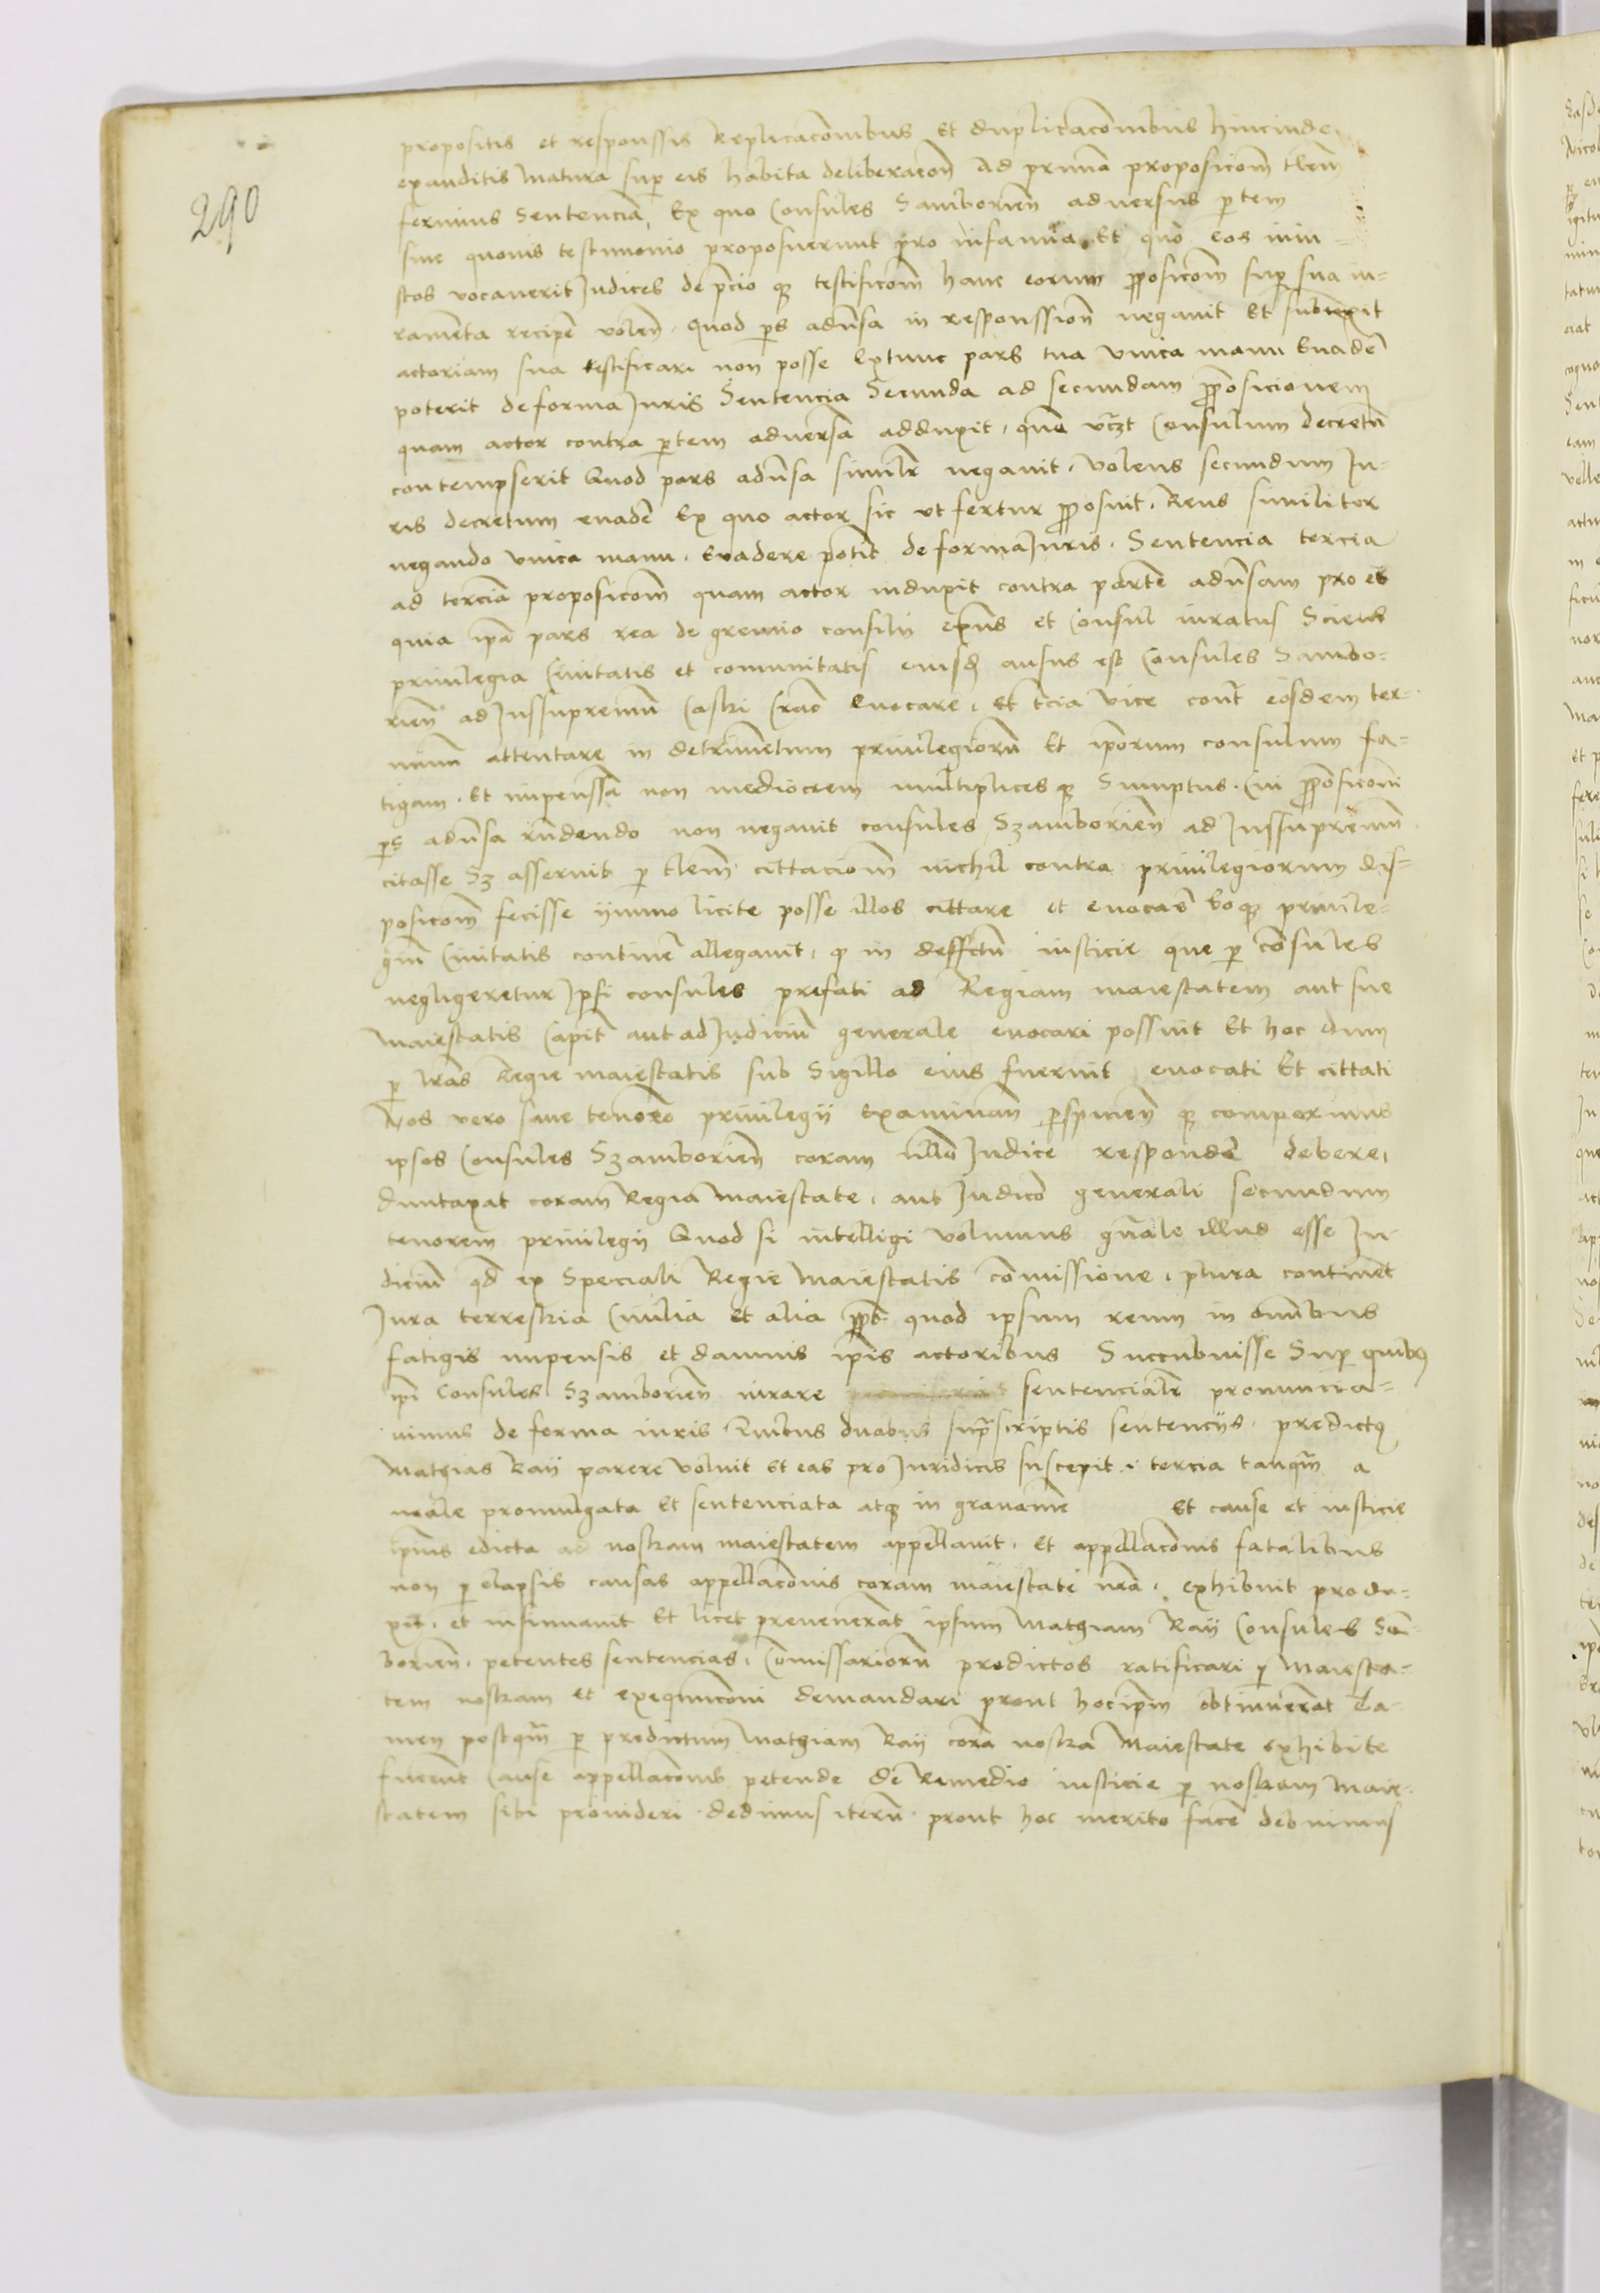 290
propositis et responssis Replicacõnibus et duplicacõnibus hincinde
exauditis matura sup eis habita deliberacoñ Ad primã proposicom̃ tlem̃
ferimus Sentenciã, Ex quo Consules Samborieñ adversus p̱tem
sine quovis testimonio proposuerunt pro infamia Et quo eos iniu-
stos vocaverit Judices hanc eorum p̱posicom̃ sup sua iu-
ramenta recipẽ voleñ. quod p̱s adũsa in responssioñ negavit Et subiũxit
actoriam sua testificari non posse Extunc pars tua Unica manu Evadẽ
poterit de forma Juris Sentencia Secunda ad secundam p̱posicionem
quam actor contra p̱tem adversã adduxit, Consulum decretũ
contempserit Quod pars adũsa similr̃ negavit. volens secundum Ju-
ris decretum evadẽ Ex quo actor sic ut fertur p̱posuit. Reus similiter
negando Unica manu. Evadere potit de forma Juris. Sentencia tercia
ad terciã proposicom̃ quam actor induxit contra partẽ adũsam pro eo
quia ip̃a pars rea de gremio consilii exñs et Consul iuratus Sciens
privilegia Civitatis et comunitatis eiusd̃ ausus est Consules Sambo-
rieñ ad Jussupremũ Castri Crac̃ Evocare, Et tcia vice cont̃ eosdem ter-
minũ attentare in detrimentum privilegiorũ Et ip̃orum consulum fa-
tigam. Et impenssã non mediocrem multiplices q̃ Sumptus. Cui p̱posiconi
p̱s adũsa rñdendo non negavit consules Szamborieñ ad Jussupremũ
citasse Sz asseruit p̱ tlem̃ cittaciom̃ nichil contra privilegiorum dis-
posicom̃ fecisse ymmo licite posse illos cittare et evocarẽ Eoq̃ privile-
giũ Civitatis continẽ allegavit, q̱ in deffctũ iusticie que p̱ cõsules
negligeretur Ipsi consules prefati ad Regiam maiestatem aut sue
Maiestatis Capit̃ aut ad Judiciũ generale evocari possint Et hoc dum
p̱ lrãs Regie maiestatis sub Sigillo eius fuerint evocati Et cittati
Nos vero sane tenorẽ privilegii Examinañ p̱spiceñ q̃ comperimus
ipsos Consules Szamborieñ coram nullo Judice respondẽ debere,
duntaxat coram Regia Maiestate, aut Judicõ generali secundum
tenorem privilegii Quod si intelligi volumus gñale illud esse Ju-
diciũ qd̃ ex Speciali Regie Maiestatis comissione, plura continet
Jura terrestria Civilia et alia quod ipsum reum in omĩbus
fatigis impensis et damnis ip̃is actoribus Succubuisse Sup quibus
ip̃i Consules Szamborieñ iurare sentencialr̃ pronuncia-
vimus de forma iuris. Quibus duabus sup̃scriptis sentenciis. predictus
Mathias Raii parere voluit et eas pro Juridicis suscepit, tercia tanq̃m a
male promulgata Et sentenciata atq̃ in gravamẽ Et cause et iusticie
ip̃ius edicta ad nostram maiestatem appellavit. Et appellacõnis fatalibus
non p̱ elapsis causas appellacõnis coram maiestate nrã. exhibuit produ-
xit. et insinuavit Et licet prevenerãt ipsum Mathiam Raii Consules Sã-
borieñ. petentes sentencias. Comissariorũ predictos ratificari p̱ Maiesta-
tem nostram et exequucõni demandari prout hoc ip̃m obtinuerãt Ta-
men postq̃m p̱ predictum Mathiam Raii corã nostra Maiestate exhibite
fuerunt Cause appellacõnis petende de Remedio iusticie p̱ nostram Maie-
statem sibi provideri. dedimus iterũ prout hoc merito facẽ debuimus